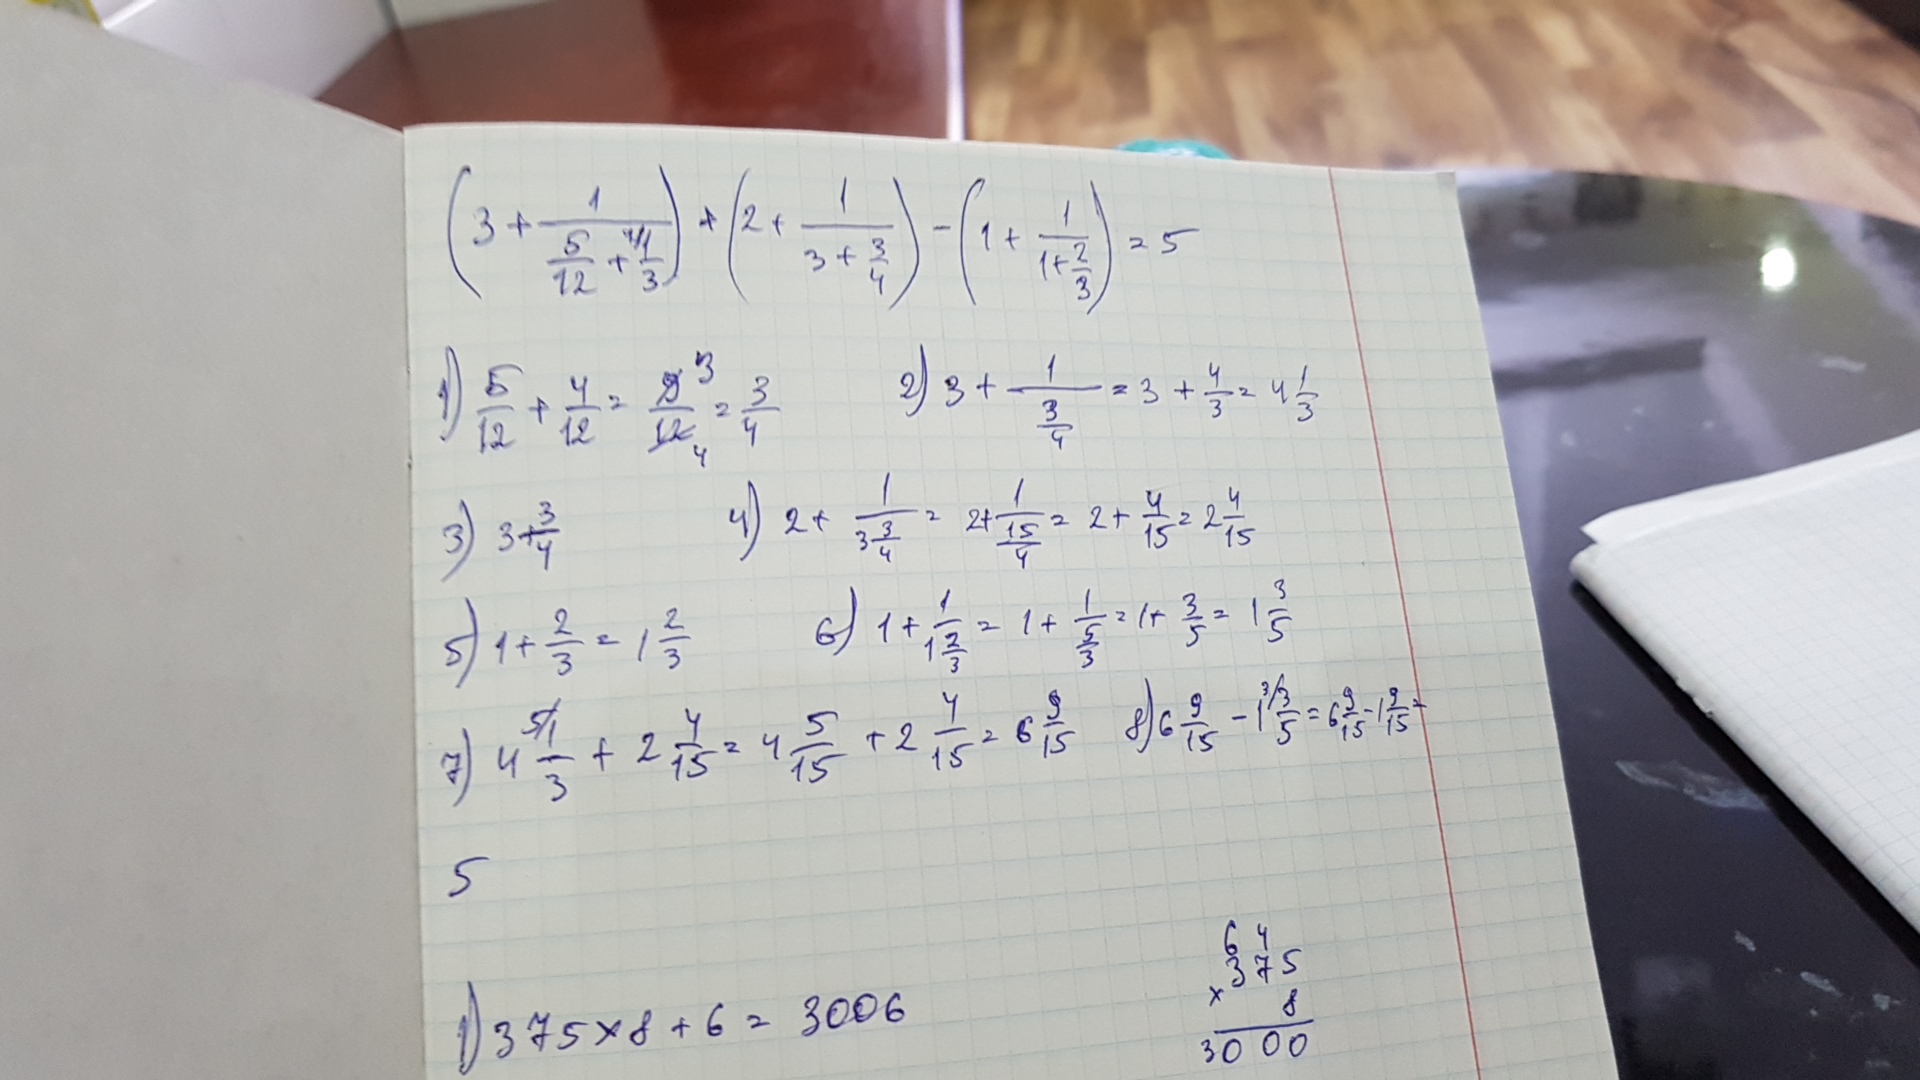 (3 + 1/(5/12 + 1/3)) + (2 + 1/(3 + 3/4)) - (1 + 1/(1 + 2/3)) = 5
1) 5/12 + 4/12 = 9/12 = 3/4 2) 3 + 1/(3/4) = 3 + 4/3 = 4 1/3
3) 3 + 3/4 4) 2 + 1/(3 3/4) = 2 + 1/(15/4) = 2 + 4/15 = 2 4/15
5) 1 + 2/3 = 1 2/3 6) 1 + 1/(1 2/3) = 1 + 1/(5/3) = 1 + 3/5 = 1 3/5
7) 4 1/3 + 2 4/15 = 4 5/15 + 2 4/15 = 6 9/15 8) 6 9/15 - 1 3/5 = 6 9/15 - 1 9/15 =
5
6 4
375
× 8
3000
1) 375 × 8 + 6 = 3006